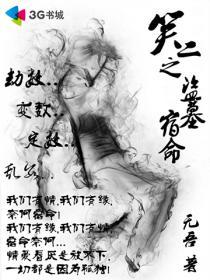 3G书城
之盗墓
宿命
劫数...
变数...
定数...
乱
我们有情,我们有缘,
奈何宿命!
我们有情,我们有缘,
宿命奈何...
是放不下,
一切都是因为孤独!
元吾 著